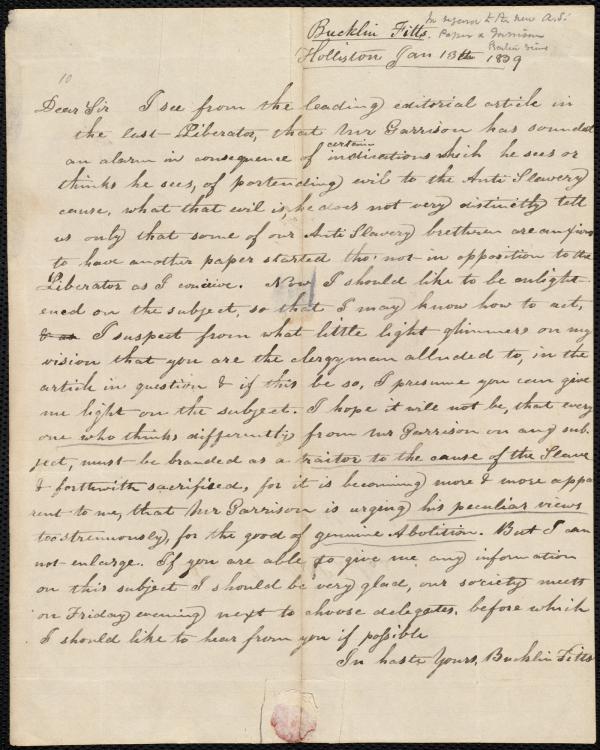 Bucklin Fitts. In regard to the new A.S.
Paper & Garrison
Holliston Jan 13th 1839
10
Dear Sir I see from the leading editorial article in
the last Liberator, that Mr Garrison has sounded
an alarm in consequence of certain indications which he sees or
thinks he sees, of portending evil to the Anti Slavery
cause, what that evil is, he does not very distinctly tell
us only that some of our Anti Slavery brethren are anxious
to have another paper started tho' not in opposition to the
Liberator as I conceive. Now I should like to be enlight-
ened on the subject, so that I may know how to act,
& as I suspect from what little light glimmers on my
vision that you are the clergyman alluded to, in the
article in question & if this be so, I presume you can give
me light on the subject. I hope it will not be, that every
one who thinks differently from Mr Garrison on any sub-
ject, must be branded as a traitor to the cause of the Slave
& forthwith sacrifised, for it is becoming more & more appa
rent to me, that Mr Garrison is urging his peculiar views
too strenuously, for the good of genuine Abolition. But I can
not enlarge. If you are able to give me any information
on this subject I should be very glad, our society meets
on Friday evening next to choose delegates, before which
I should like to hear from you if possible
In haste Yours, Bucklin Fitts